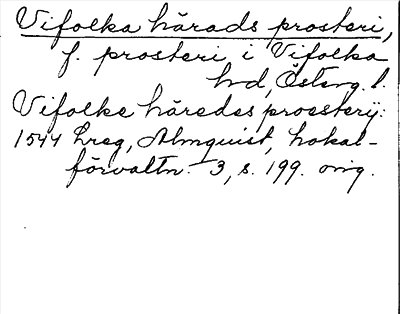 Vifolka härads prosteri,
f. prosteri i Vifolka
hd, Österg. l.
Vifolke häredes proesterij:
1544 hreg, Almquist, Lokal-
förvaltn. 3, s. 199. orig.